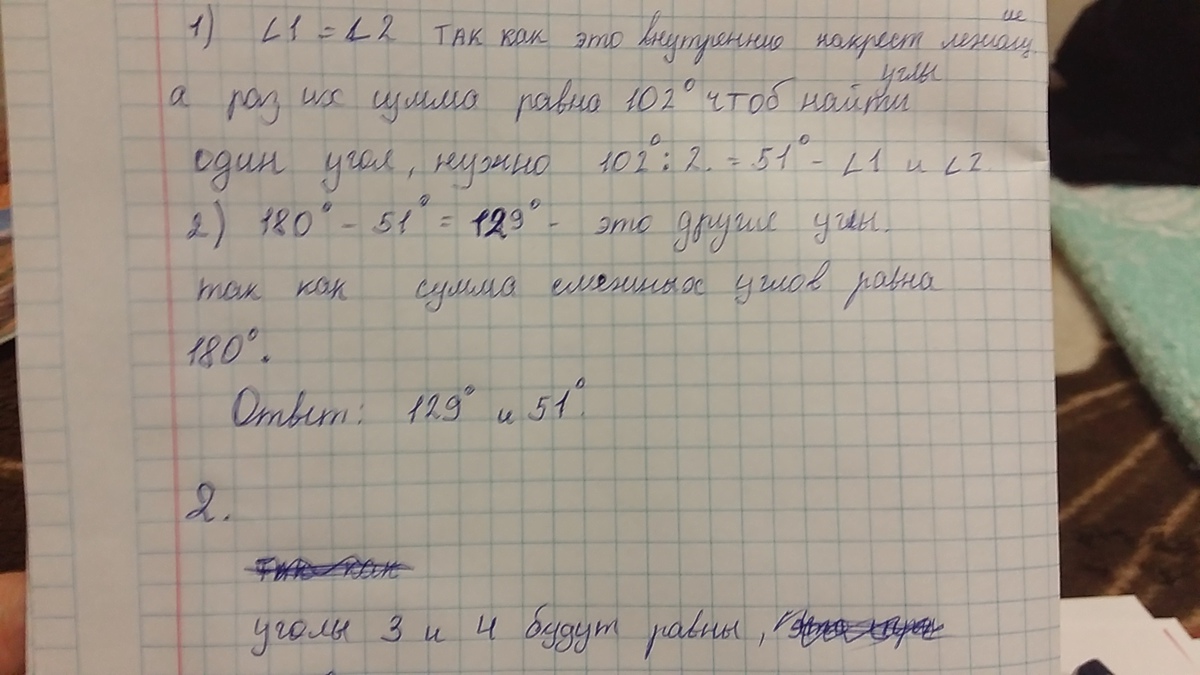 1) ∠1 = ∠2 так как это внутренние накрест лежащие
углы
а раз их сумма равна 102° чтоб найти
один угол, нужно 102° : 2. = 51° - ∠1 и ∠2.
2) 180° - 51° = 129° - это другие углы.
так как сумма смежных углов равна
180°.
Ответ: 129° и 51°.
2.
уголы 3 и 4 будут равны,